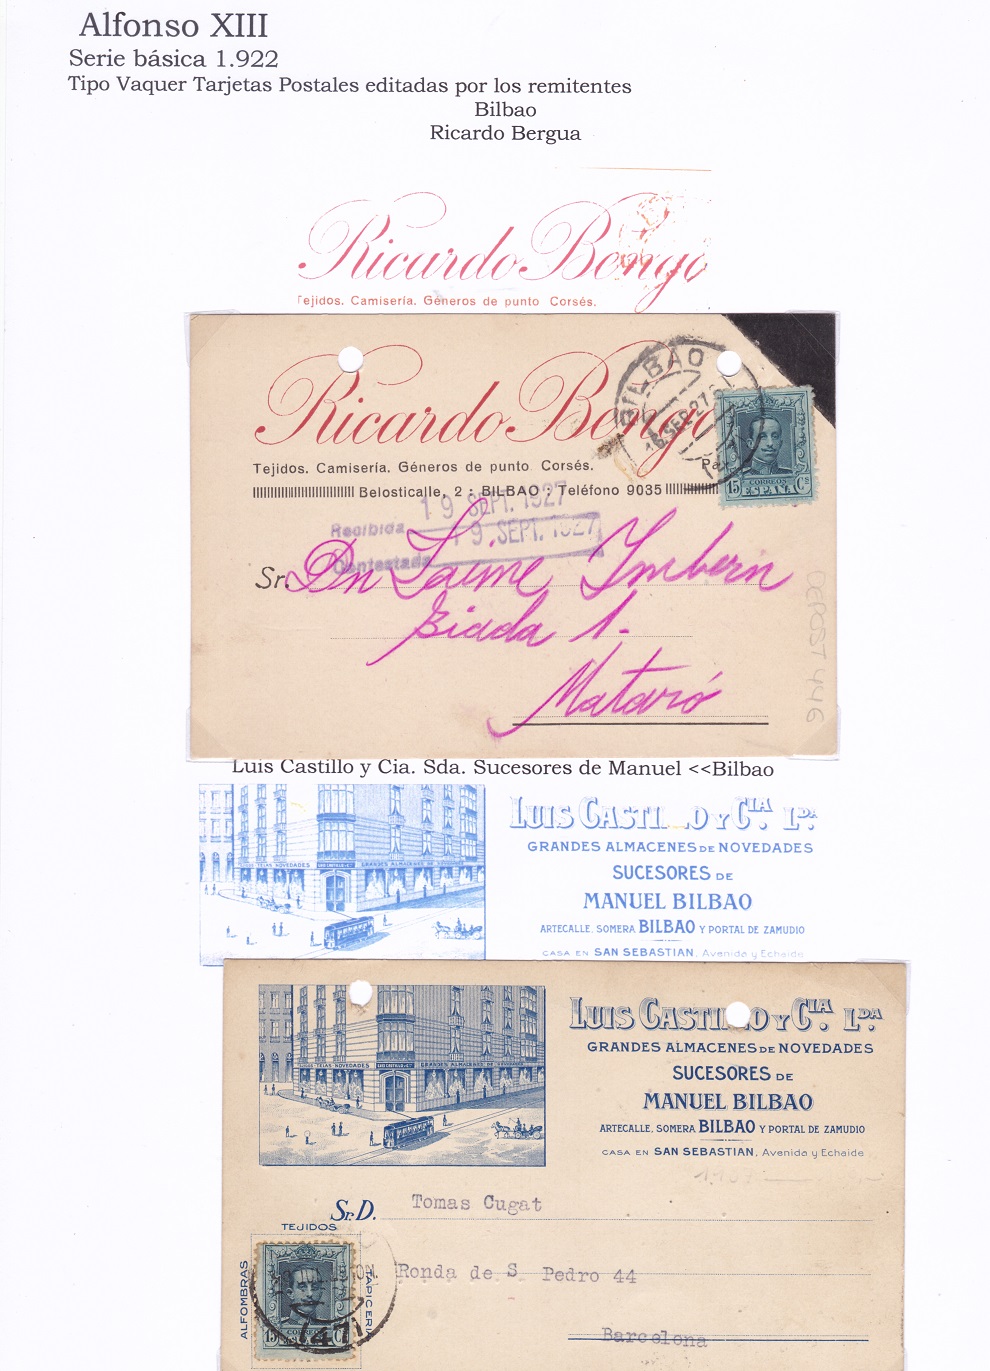 Alfonso XIII
Serie básica 1.922
Tipo Vaquer Tarjetas Postales editadas por los remitentes
Bilbao
Ricardo Bergua
Ricardo Bengo
Tejidos. Camisería. Géneros de punto Corsés.
Ricardo Bengo
BILBAO
16 SEP 27
Tejidos. Camisería. Géneros de punto Corsés.
15 CORREOS ESPAÑA Cs
Belosticalle, 2 : BILBAO : Teléfono 9035
Recibida 19 SEPT. 1927
Contestada 19 SEPT. 1927
Sr. Dn Jaime Imbern
Biada 1.
Mataró
DEPOST 446
Luis Castillo y Cia. Sda. Sucesores de Manuel <<Bilbao
LUIS CASTILLO Y CIA. LDA.
GRANDES ALMACENES DE NOVEDADES
SUCESORES DE
MANUEL BILBAO
ARTECALLE, SOMERA BILBAO Y PORTAL DE ZAMUDIO
CASA EN SAN SEBASTIAN, Avenida y Echaide
LUIS CASTILLO Y CIA. LDA.
GRANDES ALMACENES DE NOVEDADES
SUCESORES DE
MANUEL BILBAO
ARTECALLE, SOMERA BILBAO Y PORTAL DE ZAMUDIO
CASA EN SAN SEBASTIAN, Avenida y Echaide
Sr. D. Tomas Cugat
TEJIDOS
ALFOMBRAS
TAPICERIA
Ronda de S Pedro 44
15
(47)
Barcelona